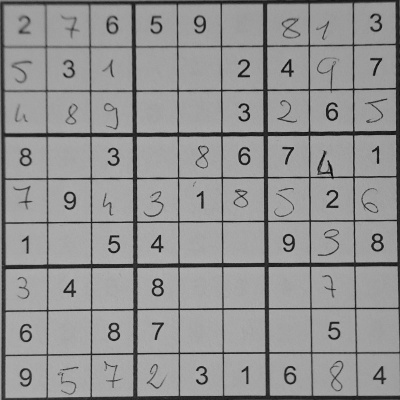 2 7 6 5 9 8 1 3
5 3 1 2 4 9 7
4 8 9 3 2 6 5
8 3 8 6 7 4 1
7 9 4 3 1 8 5 2 6
1 5 4 9 3 8
3 4 8 7
6 8 7 5
9 5 7 2 3 1 6 8 4